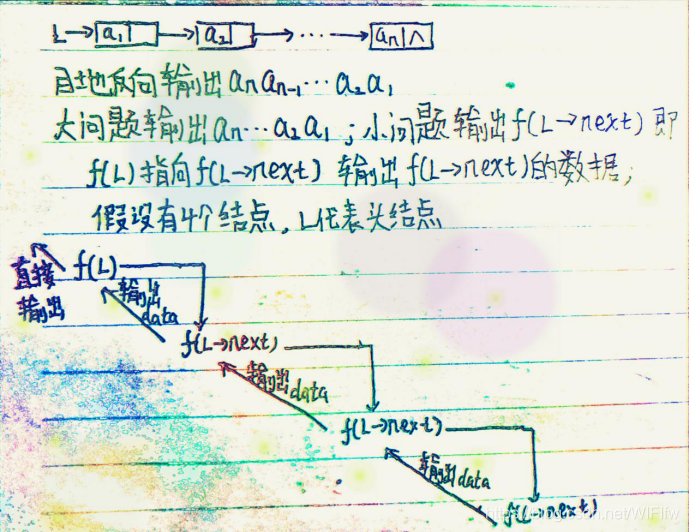 L→a₁→a₂→⋯→an∧
目地反向输出anan-1⋯a₂a₁
大问题输出an⋯a₂a₁;小问题输出f(L→next)即
f(L)指向f(L→next)输出f(L→next)的数据;
假设有4个结点,L代表头结点
直接输出
f(L)
输出data
f(L→next)
输出data
f(L→next)
输出data
f(L→next)